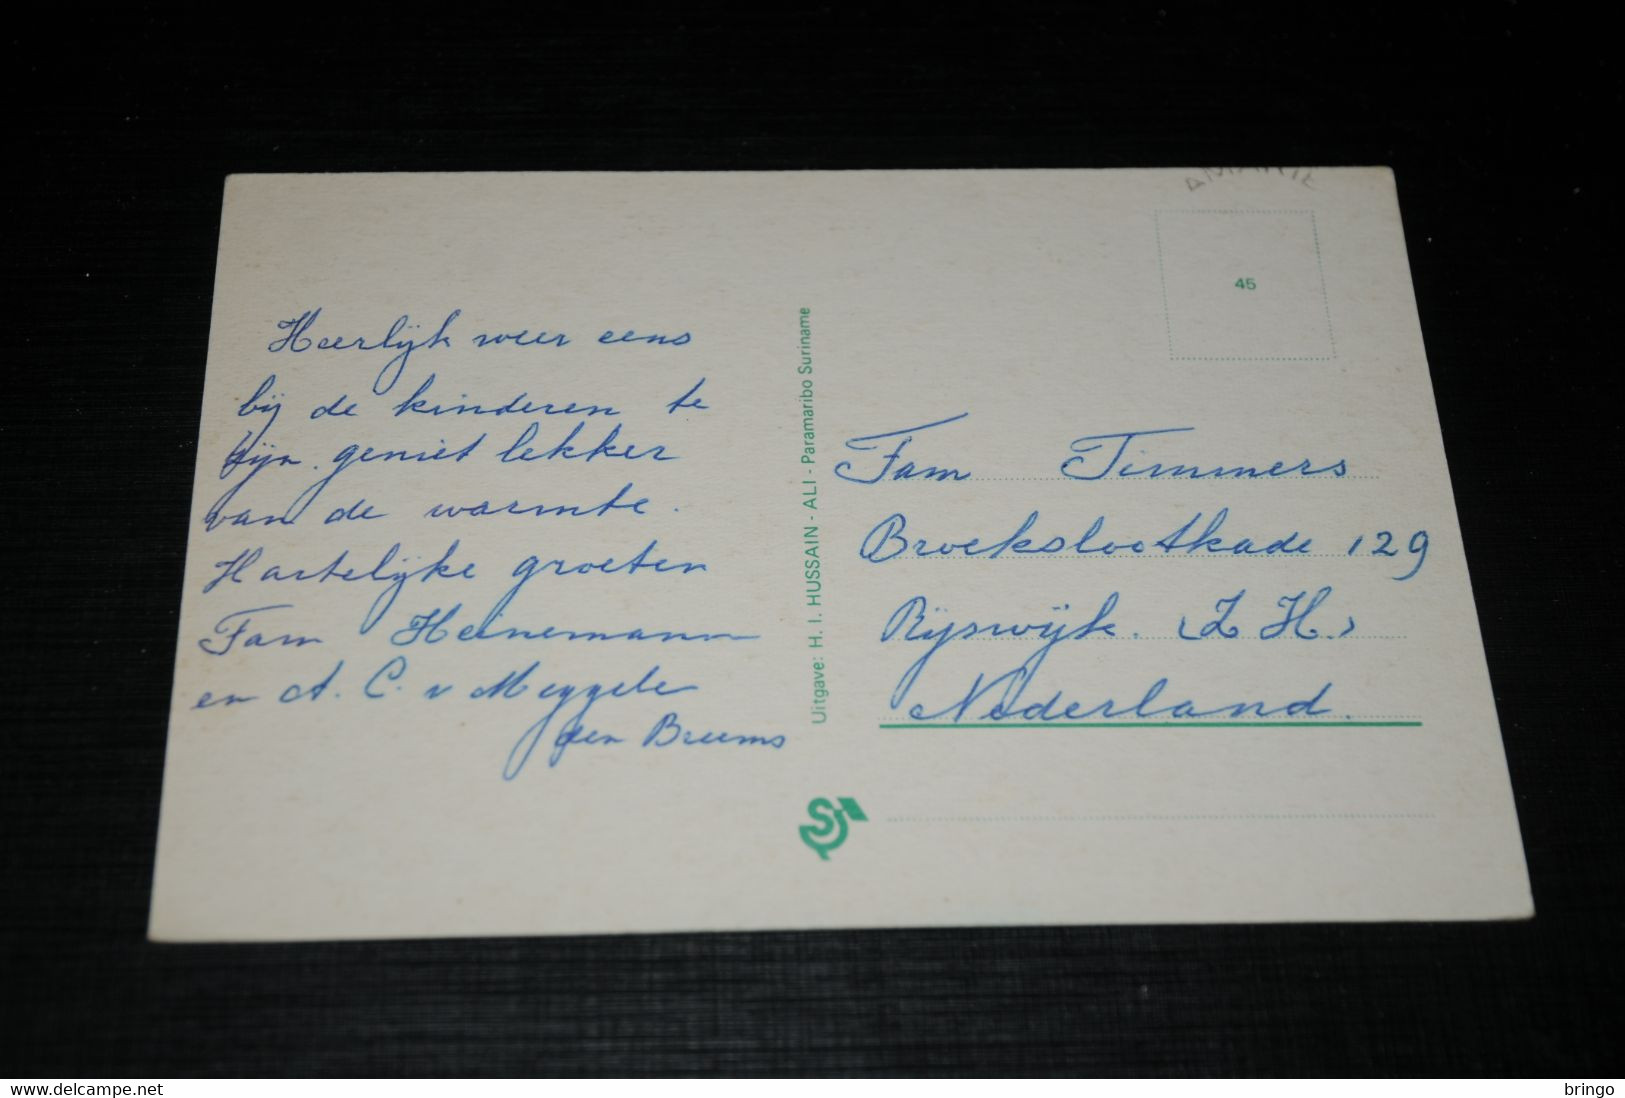 Heerlijk weer eens
bij de kinderen te
zijn. geniet lekker
van de warmte.
Hartelijke groeten
Fam Heinemann
en A. C. v Meggele
den Breems
Uitgave: H. I. HUSSAIN - ALI - Paramaribo Suriname
45
Fam Timmers
Broekslootkade 129
Rijswijk. (Z H.)
Nederland.
www.delcampe.net
bringo